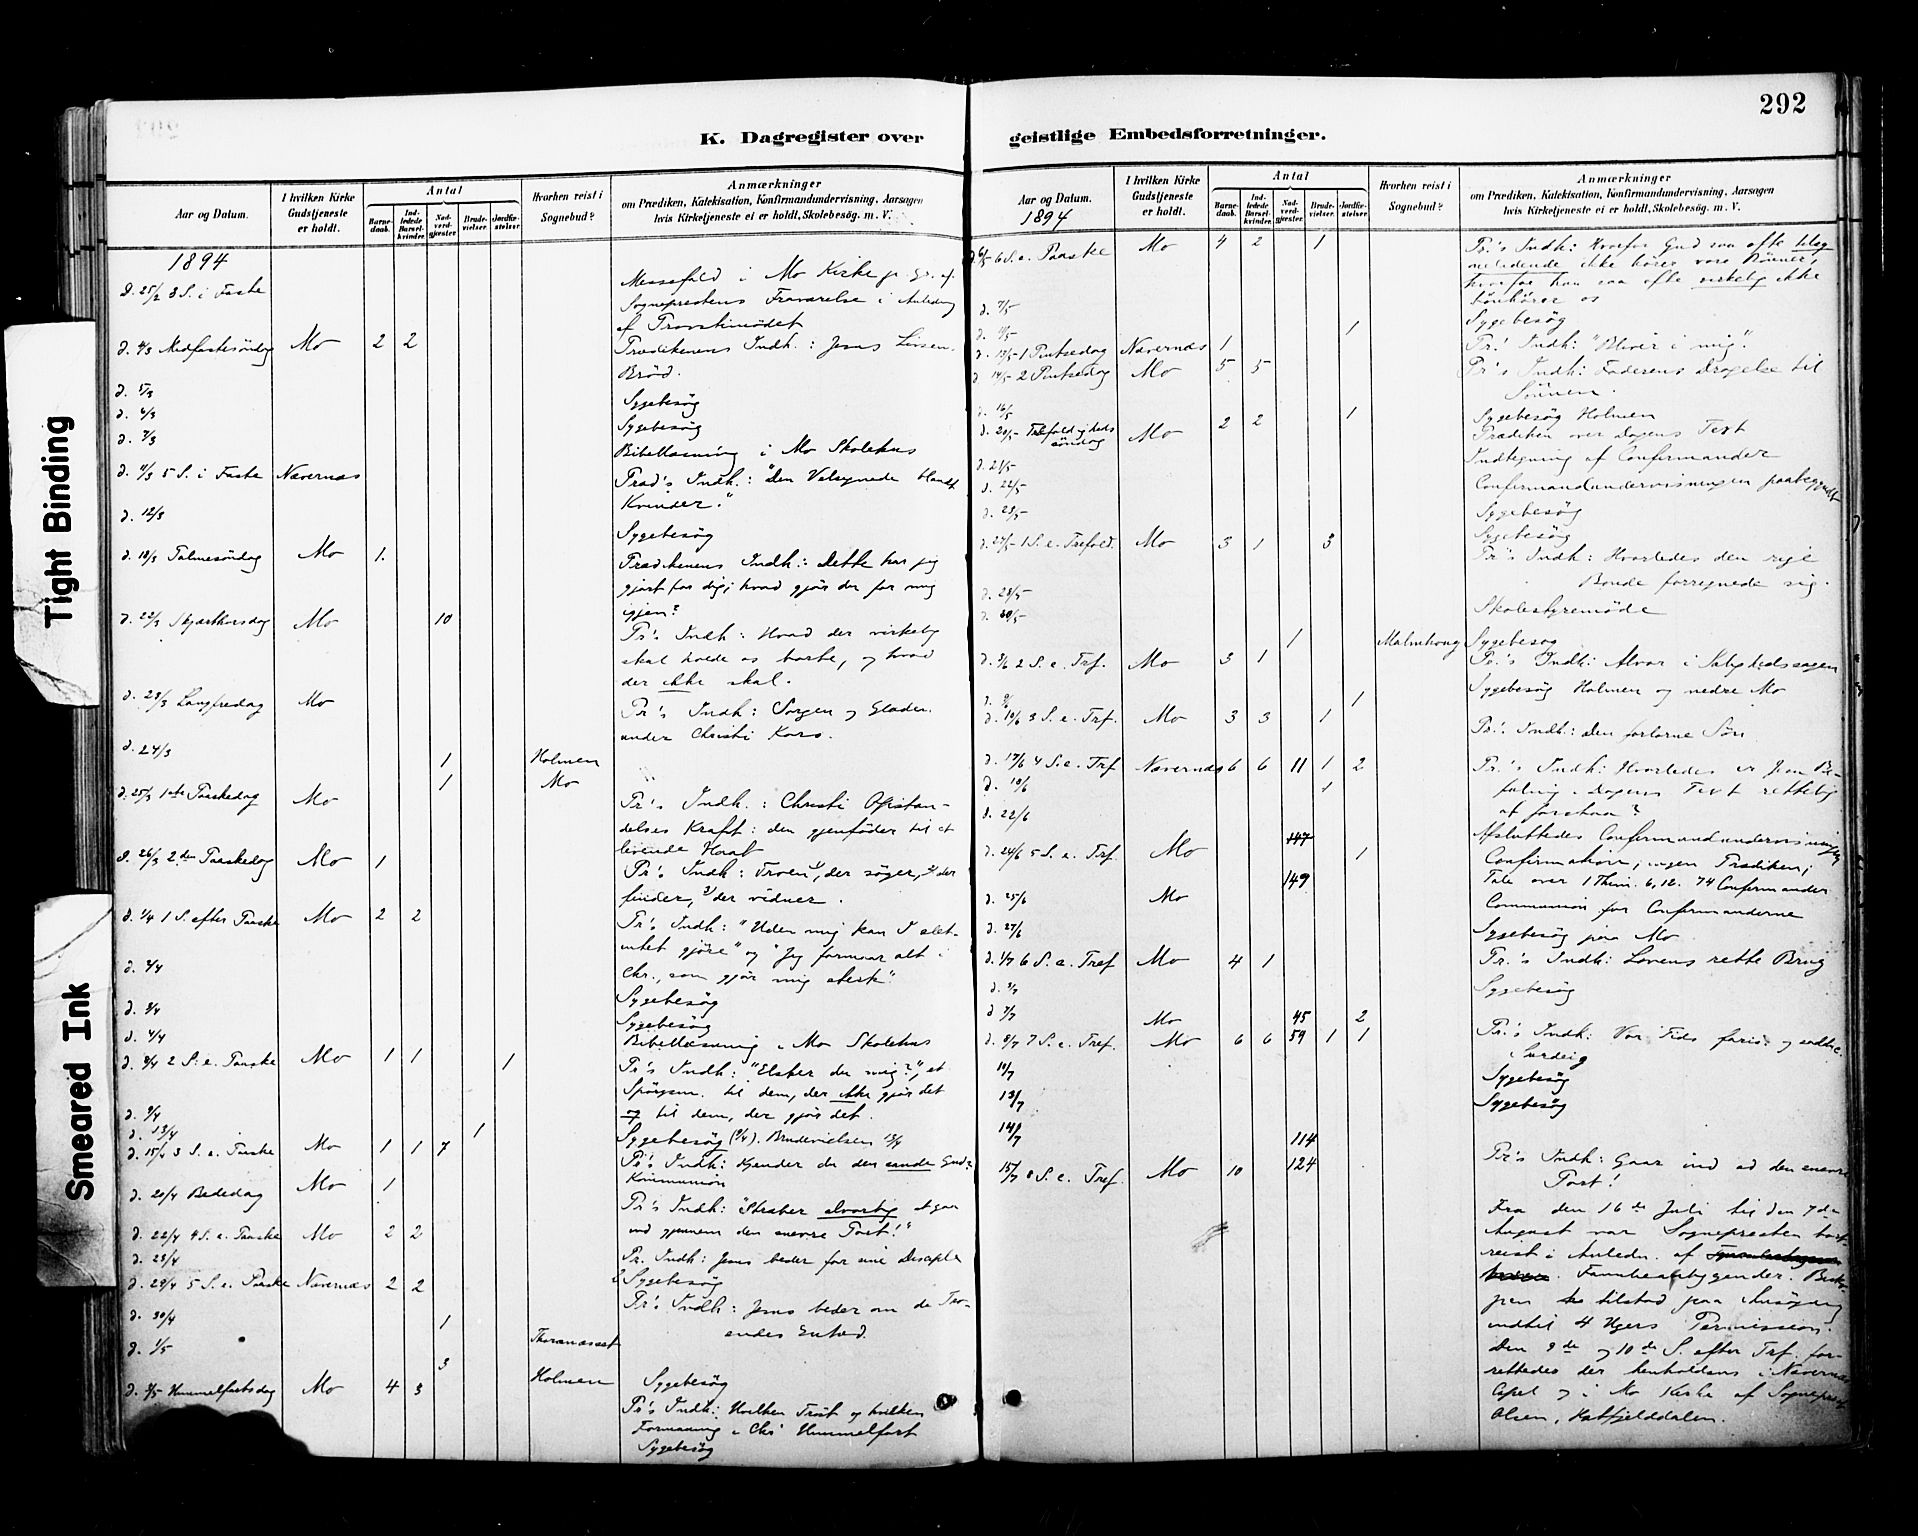 292
K. Dagregister over geistlige Embedsforretninger.
Tight Binding
Smeared Ink
Aar og Datum.
I hvilken Kirke Gudstjeneste er holdt.
Antal
Barnedaab.
Indledede Barselkvinder.
Nadverdgjester
Brudevielser
Jordfæstelser
Hvorhen reist i Sognebud?
Anmærkninger
om Prædiken, Katekisation, Konfirmandundervisning, Aarsagen
hvis Kirketjeneste ei er holdt, Skolebesög. m. V.
1894
d. 25/2 3 S. i Faste
Messefald i Mo Kirke p. Gr. af
Sogneprestens Fraværelse i Anledning
af Provstimödet
d. 4/3 Midfastesöndag Mo 2 2 Prædikenens Indh.: Jesus Livsens
Bröd.
d. 5/3 Sygebesög
d. 6/3 Sygebesög
d. 7/3 Bibellæsning i Mo Skolehus
d. 11/3 5 S. i Faste Nævernæs Præd's Indh.: "Den Velsignede blandt
Kvinder."
d. 12/3 Sygebesög
d. 18/3 Palmesöndag Mo 1. Prædikenens Indh.: Dette har jeg
gjort for dig; hvad gjör du for mig
igjen?
d. 22/3 Skjærthorsdag Mo 10 Pr's Indh: Hvad der virkelig
skal holde os borte, og hvad
der ikke skal.
d. 23/3 Langfredag Mo Pr's Indh: Sorgen og Glæden
under Christi Kors.
d. 24/3 1 Holmen
1 Mo
d. 25/3 1ste Paaskedag Mo Pr's Indh.: Christi Opstan-
delses Kraft: den gjenföder til et
levende Haab
d. 26/3 2den Paaskedag Mo 1 Pr's Indh: Troen 1/ der söger, 2/ der
finder, 3/ der vidner.
d. 1/4 1 S. efter Paaske Mo 2 2 Pr's Indh: "Uden mig kan I slet
intet gjöre" og "Jeg formaar alt i
Chr., som gjör mig sterk"
d. 2/4 Sygebesög
d. 3/4 Sygebesög
d. 4/4 Bibellæsning i Mo Skolehus
d. 8/4 2 S. e. Paaske Mo 1 1 1 Pr's Indh: "Elsker du mig?", et
Spörgsm. til dem, der ikke gjör det
og til dem, der gjör det.
d. 9/4
d. 13/4 1 Sygebesög (9/4). Brudevielsen 13/4
d. 15/4 3 S. e. Paaske Mo 1 1 7 Pr's Indh: Kjender du den sande Gud?
Kommunion
d. 20/4 Bededag Mo 1 Pr's Indh: "Stræber alvorlig at gaa
ind gjennem den snevre Port!"
d. 22/4 4 S. e. Paaske Mo 2 2 Pr. Indh: Jesus beder for sine Disciple
d. 23/4 Sygebesög
d. 29/4 5 S. e. Paaske Nævernæs 2 2 Pr's Indh: Jesus beder om de Tro-
endes Enhed.
d. 30/4 1
d. 1/5 3 Holmen Sygebesög
d. 3/5 Himmelfartsdag Mo 4 3 Pr's Indh: Hvilken Tröst og hvilken
Formaning i Chr's Himmelfart
Sygebesög
Aar og Datum.
1894
I hvilken Kirke Gudstjeneste er holdt.
Antal
Barnedaab.
Indledede Barselkvinder.
Nadverdgjester
Brudevielser
Jordfæstelser
Hvorhen reist i Sognebud?
Anmærkninger
om Prædiken, Katekisation, Konfirmandundervisning, Aarsagen
hvis Kirketjeneste ei er holdt, Skolebesög. m. V.
d. 6/5 6 S. e. Paaske Mo 4 2 1 Pr's Indh: Hvorfor Gud saa ofte tilsy
neladende ikke hörer vore Bönner,
hvorfor han saa ofte virkelig ikke
bönhörer os
d. 7/5 Sygebesög
d. 1
d. 13/5 1 Pintsedag Nævernæs 1 Pr.' Indh: "Bliver i mig."
d. 14/5 2 Pintsedag Mo 5 5 Pr's Indh: Faderens Dragelse til
Sönnen.
d. 16/5 1 Sygebesög Holmen
d. 20/5 Trefoldigheds
söndag Mo 2 2 Prædiken over Dagens Text
d. 21/5 Indtegning af Confirmander
d. 22/5 Confirmandundervisningen paabegyndt
d. 23/5 Sygebesög
Sygebesög
d. 27/5 1 S. e. Trefold. Mo 3 1 3 Pr's Indh: Hvorledes den rige
Bonde forregnede sig.
d. 28/5 Skolestyremöde
d. 1 Malmhoug Sygebesög
d. 3/6 2 S. e. Trf. Mo 3 1 Pr's Indh: Alvor i Salighedssagen
d. 9/ 1 Sygebesög Holmen og nedre Mo
d. 10/6 3 S. e. Trf. Mo 3 3 1 Pr's Indh.: Den fortorne Sön
d. 17/6 4 S. e. Trf Nævernæs 6 6 11 1 2 Pr.'s Indh: Hvorledes er Jesu Be-
d. 18/6 1 faling i Dagens Text rettelig
at forstaa?
d. 22/6 Afsluttedes Confirmandundervisningen
d. 24/6 5 S. e. Trf. Mo 147 1 Confirmation; ingen Prædiken;
Tale over 1 Thim. 6,12. 74 Confirmander
d. 25/6 Mo 149 Communion for Confirmanderne
d. 27/6 Sygebesög paa Mo
d. 1/7 6 S. e. Tref Mo 4 1 Pr.'s Indh: Lovens rette Brug
d. 3/7 Sygebesög
d. 7/7 Mo 45 2
d. 8/7 7 S. e. Tref. Mo 6 6 59 1 1 Pr.'s Indh: Vor Tids faris. og sadduc.
Surdeig
10/7 Sygebesög
13/7 Sygebesög
14/7 114
15/7 8 S. e. Tref. Mo 10 124 Pr's Indh: Gaar ind ad den snevre
Port!
Fra den 16de Juli til den 7de
August var Sognepresten bort
reist i Anledn. af
Familieanliggender. Bisko-
pen tilstod paa Ansögning
indtil 4 Ugers Permission.
Den 9de og 10de S. efter Trf. for-
rettedes der henholdsvis i Nævernæs
Capel og i Mo Kirke af Sogneprest
Olsen, Hatfjelddalen.